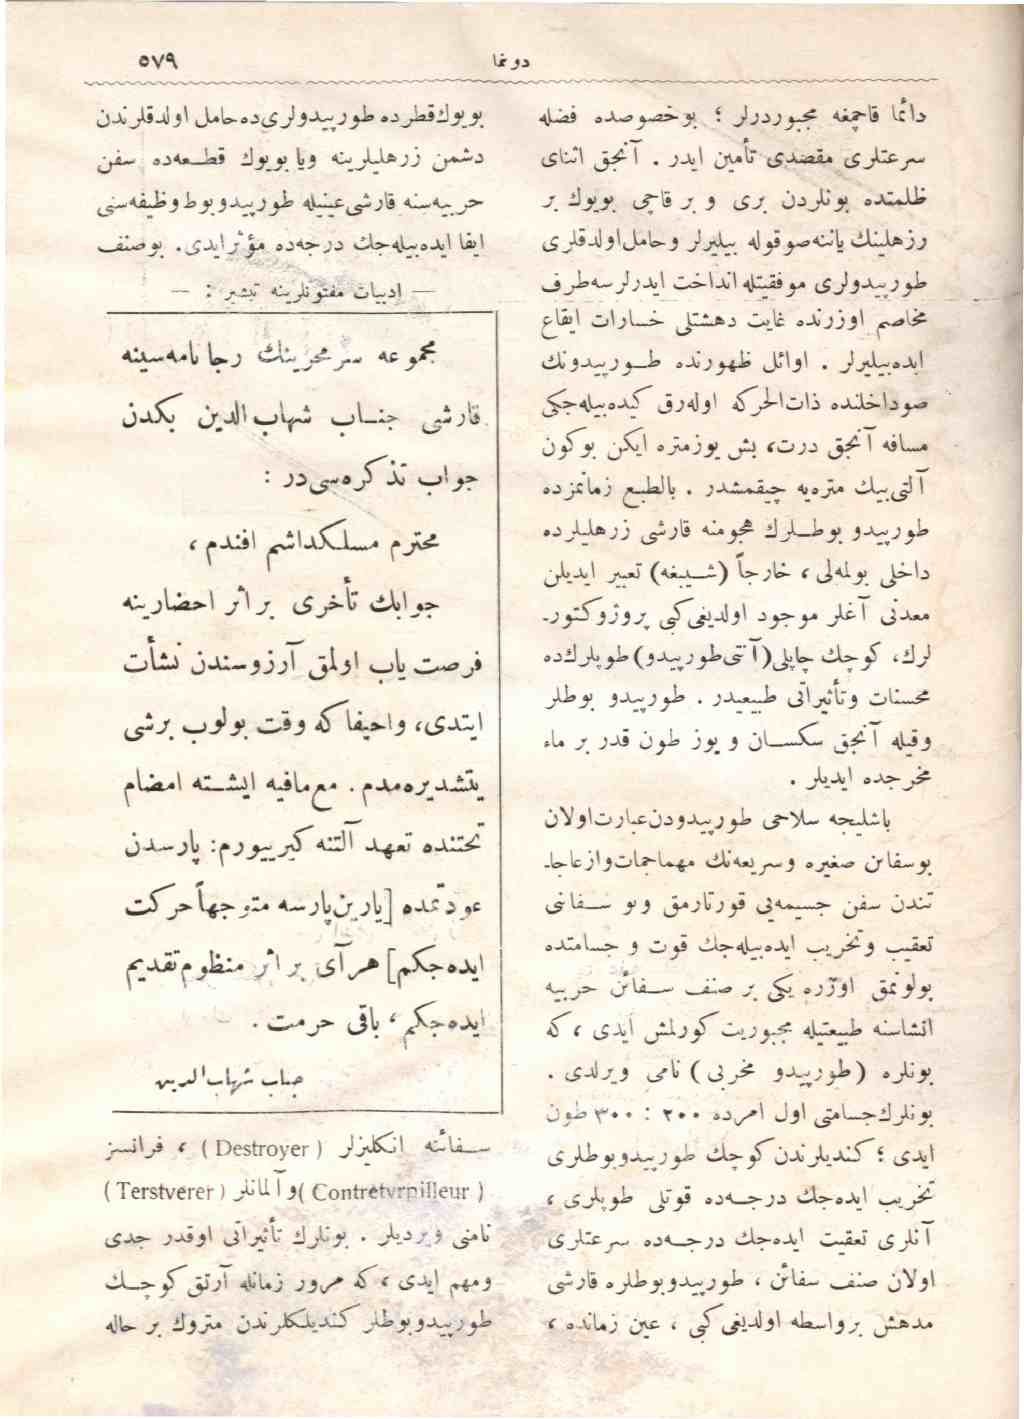 دوغا
٥٧٩
دائما قاچمغه مجبوردرلر ؛ بوخصوصده فضله
سرعتلری مقصدی تأمین ایدر . آنجق اثنای
ظلمتده بونلردن بری و بر قاچی بویوك بر
رزهلینك یاننه صوقوله بیلیرلر وحامل اولدقلری
طورپیدولری موفقیتله انداخت ایدرلرسه طرف
مخاصم اوزرنده غایت دهشتلی خسارات ایقاع
ایده بیلیرلر . اوائل ظهورنده طورپیدونك
صوداخلنده ذات الحرکه اوله رق کیده بیله جکی
مسافه آنجق درت، بش یوزمتره ایکن بوکون
آلتی بیك متره یه چیقمشدر . بالطبع زمانمزده
طورپیدو بوطلرك هجومنه قارشی زرهلیلرده
داخلی بولمه لی ، خارجاً (شیبغه) تعبیر ایدیلن
معدنی آغلر موجود اولدیغی کبی پروژوکتور-
لرك، کوچك چاپلی (آنتی طورپیدو) طوپلرك ده
محسنات وتأثیراتی طبیعیدر . طورپیدو بوطلر
وقیله آنجق سکسان و یوز طون قدر بر ماء
مخرجده ایدیلر .
باشلیجه سلاحی طورپیدودن عبارت اولان
بوسفائن صغیره وسریعه نك مهماجمات وازعاجا-
تندن سفن جسیمه یی قورتارمق وبو سفائنی
تعقیب وتخریب ایده بیله جك قوت و جسامتده
بولونمق اوزره یکی بر صنف سفائن حربیه
انشاسنه طبیعتیله مجبوریت کورلمش ایدی ، که
بونلره (طورپیدو مخربی) نامی ویرلدی .
بونلرك جسامتی اول امرده ٢٠٠ : ٣٠٠ طون
ایدی ؛ کندیلرندن کوچك طورپیدوبوطلری
تخریب ایده جك درجه ده قوتلی طوپلری ،
آنلری تعقیت ایده جك درجه ده سرعتلری
اولان صنف سفائن ، طورپیدوبوطلره قارشی
مدهش برواسطه اولدیغی کبی ، عین زمانده ،
بویوك قطرده طورپیدولری ده حامل اولدقلرندن
دشمن زرهلیلرینه ویا بویوك قطعه ده سفن
حربیه سنه قارشی عینیله طورپیدوبوط وظیفه سنی
ایفا ایده بیله جك درجه ده مؤثر ایدی . بوصنف
— ادبیات مفتونلرینه تبشیر : —
مجموعه سرمحررینك رجا نامه سینه
قارشی جناب شهاب الدین بکدن
جواب تذکره سی در :
محترم مسلکداشم افندم ،
جوابك تأخری بر اثر احضارینه
فرصت یاب اولمق آرزوسندن نشأت
ایتدی، واحیفا که وقت بولوب برشی
یتشدیره مدم . مع مافیه ایشته امضام
تحتنده تعهد آلتنه کیرییورم : پارسدن
عودتمده [یارین پارسه متوجهاً حرکت
ایده جکم] هر آی بر اثر منظوم تقدیم
ایده جکم ، باقی حرمت .
جناب شهاب الدین
سفائنه انکلیزلر (Destroyer) ، فرانسز
(Contretvrpilleur) و آلمانلر (Terstverer)
نامنی ویردیلر . بونلرك تأثیراتی اوقدر جدی
ومهم ایدی ، که مرور زمانله آرتق کوچك
طورپیدوبوطلر کندیلکلرندن متروك بر حاله